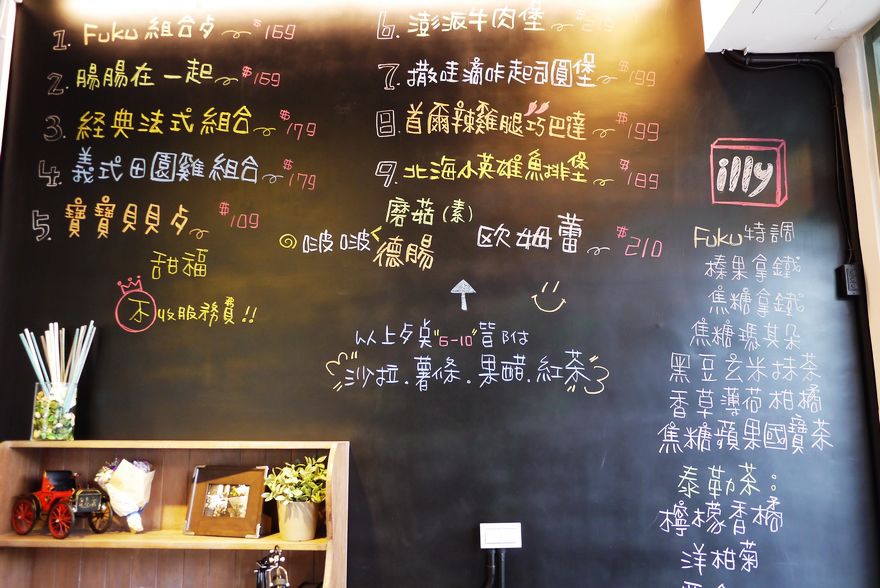 1. Fuku 組合歺 $169
2. 腸腸在一起 $169
3. 經典法式組合 $179
4. 義式田園雞組合 $179
5. 寶寶貝貝歺 $109
甜福
不收服務費!!
6. 澎派牛肉堡
7. 撒哇滴咔起司圓堡 $199
8. 首爾辣雞腿巧巴達 $199
9. 北海小英雄魚排堡 $189
啵啵 磨菇(素) 德腸 歐姆蕾 $210
以上歺桌"6-10"皆附
沙拉.薯條.果醋.紅茶
illy
Fuku特調
榛果拿鐵
焦糖拿鐵
焦糖瑪其朵
黑豆玄米抹茶
香草薄荷柑橘
焦糖蘋果國寶茶
泰勒茶：
檸檬香橘
洋柑菊